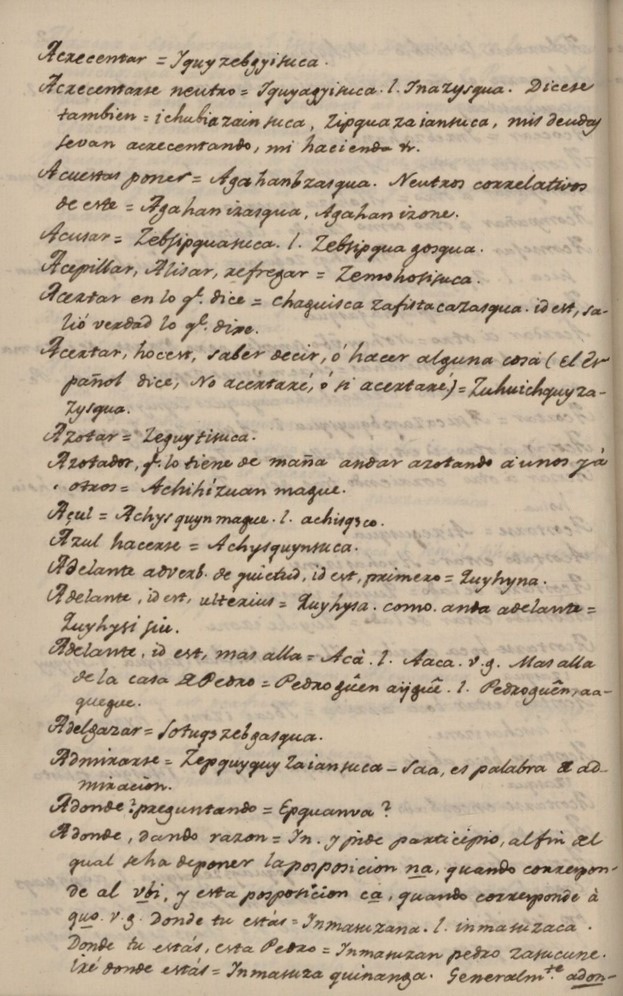 Acrecentar = Iquyzebgyisuca.
Acrecentarse neutro = Iquyagyisuca. l. Inazysqua. Dicese
tambien = ichubiazainsuca, Zipquazaiansuca, mis deudas
sevan acrecentando, mi hacienda &.
Acuestas poner = Agahanbzasqua. Neutros correlativos
de este = Agahanizasqua, Agahanizone.
Acusar = Zebsipquasuca. l. Zebsipquagosqua.
Acepillar, Alisar, refregar = Zemohosisuca.
Acertar en lo q.e dice = chaguisca zafistacazasqua. id est, sa-
lió verdad lo q.e dixe.
Acertar, hocest, saber decir, ó hacer alguna cosa (El Es
pañol dice, No acertaré, ó si acertaré) = Zuhuichquyza-
zysqua.
Azotar = Zeguytisuca.
Azotador, q.e lo tiene de maña andar azotando a unos y á
otros = Achihízuan mague.
Açul = Achysquyn mague. l. achisq3co.
Azul hacerse = Achysquynsuca.
Adelante adverb. de quietud, id est, primero = Quyhyna.
Adelante, id est, ulterius = Quyhysa. como. anda adelante =
Quyhysi siu.
Adelante, id est, mas alla = Acà. l. Aaca. v.g. Mas alla
de la casa de Pedro = Pedro gûen aîjguê. l. Pedroguên, aa-
quegue.
Adelgazar = Sotuq3zebgasqua.
Admirarse = Zepquyquyzaiansuca – Saa, es palabra de ad-
miracion.
Adonde? preguntando = Epquanva?
Adonde, dando razon = In. y pide participio, al fin del
qual seha deponer la posposicion na, quando correspon-
de al vbi, y esta posposicion ca, quando corresponde à
quo. v.g. Donde tu estás = Inmasuzana. l. inmasuzaca.
Donde tu estás, esta Pedro = Inmasuzan pedro zasucune.
Iré donde estás = Inmasuza quinanga. Generalm.te adon-